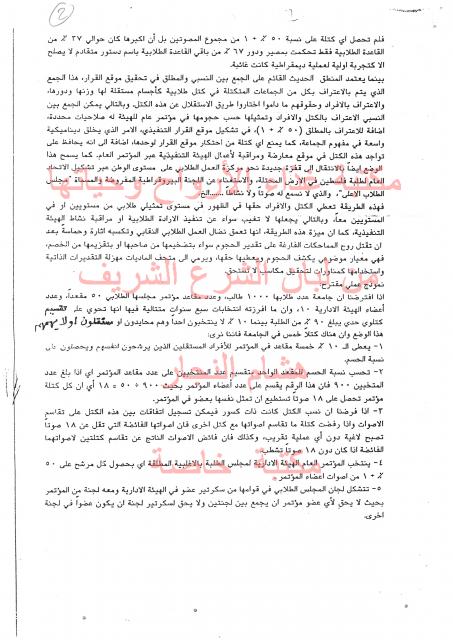 ٢
فلم تحصل اي كتلة على نسبة ٥٠ ٪ + ١ من مجموع المصوتين بل أن اكبرها كان حوالي ٣٧ ٪ من
القاعدة الطلابية فقط تحكمت بمصير ودور ٦٧ ٪ من باقي القاعدة الطلابية باسم دستور متقادم لا يصلح
الا كتجربة اولية لعملية ديمقراطية كانت غائبة.
بينما يعتمد المنطق الحديث القائم على الجمع بين النسبي والمطلق في تحقيق موقع القرار، هذا الجمع
الذي يتم بالاعتراف بكل من الجماعات المتكتلة في كتل طلابية كأجسام مستقلة لها وزنها ودورها،
والاعتراف بالافراد وحقوقهم ما داموا اختاروا طريق الاستقلال عن هذه الكتل. وبالتالي يمكن الجمع بين
النسبي الاعتراف بالكتل والافراد وتمثيلها حسب حجومها في مؤتمر عام للهيئة له صلاحيات محددة،
اضافة للاعتراف بالمطلق (٥٠ ٪ + ١)، في تشكيل موقع القرار التنفيذي، الامر الذي يخلق ديناميكية
واسعة في مفهوم الجماعة، كما يمنع اي كتلة من احتكار موقع القرار لوحدها، اضافة الى انه يحافظ على
تواجد هذه الكتل في موقع معارضة ومراقبة لأعمال الهيئة التنفيذية عبر المؤتمر العام، كما يسمح هذا
الوضع ايضاً بالانتقال الى قفزة جديدة نحو مركزة العمل الطلابي على مستوى الوطن عبر تشكيل الاتحاد
العام لطلبة فلسطين في الارض المحتلة، والاستغناء عن اللجنة البيروقراطية المفروضة والمسماة "مجلس
الطلاب الاعلى"، والذي لا نسمع له صوتاً ولا نشاطاً ......الخ.
فهذه الطريقة تعطي الكتل والافراد حقها في الظهور في مستوى تمثيلي طلابي من مستويين او في
المستويين معاً، وبالتالي يجعلها لا تغيب سواء عن تنفيذ الارادة الطلابية او مراقبة نشاط الهيئة
التنفيذية، كما ان ميزة هذه الطريقة، انها تعمق نضال العمل الطلابي النقابي وتكسبه اثارة وحماسة بعد
ان تقتل روح المماحكات الفارغة على تقدير الحجوم سواء بتضخيمها من صاحبها او بتقزيمها من الخصم،
فهي معيار موضوعي يكشف الحجوم ويعطيها حقها، ويرمي الى متحف الماديات مهزلة التقديرات الذاتية
واستخدامها كمناورات لتحقيق مكاسب لا تستحق.
نموذج عملي مقترح:
اذا افترضنا ان جامعة عدد طلابها ١٠٠٠ طالب، وعدد مقاعد مؤتمر مجلسها الطلابي ٥٠ مقعداً، وعدد
أعضاء الهيئة الادارية ١٠، وان ما افرزته انتخابات سبع سنوات متتالية فيها انها تحوي على تقسيم
كتلوي حدي يبلغ ٩٠ ٪ من الطلبة بينما ١٠ ٪ لا ينتخبون احداً وهم محايدون او مستقلون اولا
هذا الوضع وان هناك كتلاً خمس في الجامعة فاننا نرى:
١- يعطى الـ ١٠ ٪ خمسة مقاعد في المؤتمر للأفراد المستقلين الذين يرشحون انفسهم ويحصلون على
نسبة الحسم.
٢- تحسب نسبة الحسم للمقعد الواحد بتقسيم عدد المنتخبين على عدد مقاعد المؤتمر اي اذا بلغ عدد
المنتخبين ٩٠٠ فان هذا الرقم يقسم على عدد أعضاء المؤتمر بحيث ٩٠٠ ÷ ٥٠ = ١٨ أي ان كل كتلة
مؤتمر تحصل على ١٨ صوتاً تستطيع ان تمثل نفسها بعضو في المؤتمر.
٣- اذا فرضنا ان نسب الكتل كانت ذات كسور فيمكن تسجيل اتفاقات بين هذه الكتل على تقاسم
الاصوات واذا رفضت كتلة ما تقاسم اصواتها مع كتل اخرى فان اصواتها الفائضة التي تقل عن ١٨ صوتاً
تصبح لاغية دون أي عملية تقريب، وكذلك فان فائض الاصوات الناتج عن تقاسم كتلتين لاصواتهما
الفائضة اذا كان دون ١٨ صوتاً تشطب.
٤- ينتخب المؤتمر العام الهيئة الادارية لمجلس الطلبة بالاغلبية المطلقة اي بحصول كل مرشح على ٥٠
٪ + ١ من اصوات اعضاء المؤتمر.
٥- تتشكل لجان المجلس الطلابي في قوامها من سكرتير عضو في الهيئة الادارية ومعه لجنة من المؤتمر
بحيث لا يحق لأي عضو مؤتمر ان يجمع بين لجنتين ولا يحق لسكرتير لجنة ان يكون عضواً في لجنة
اخرى.
من ابان الشرع الشريف
هشام النجار
مكتبة خاصة